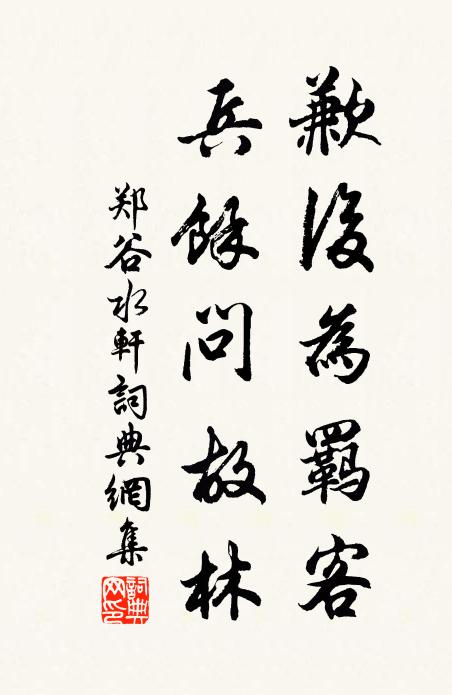 歉後為羈客
兵餘問故林
郑谷水軒詞典網集
詞典网印